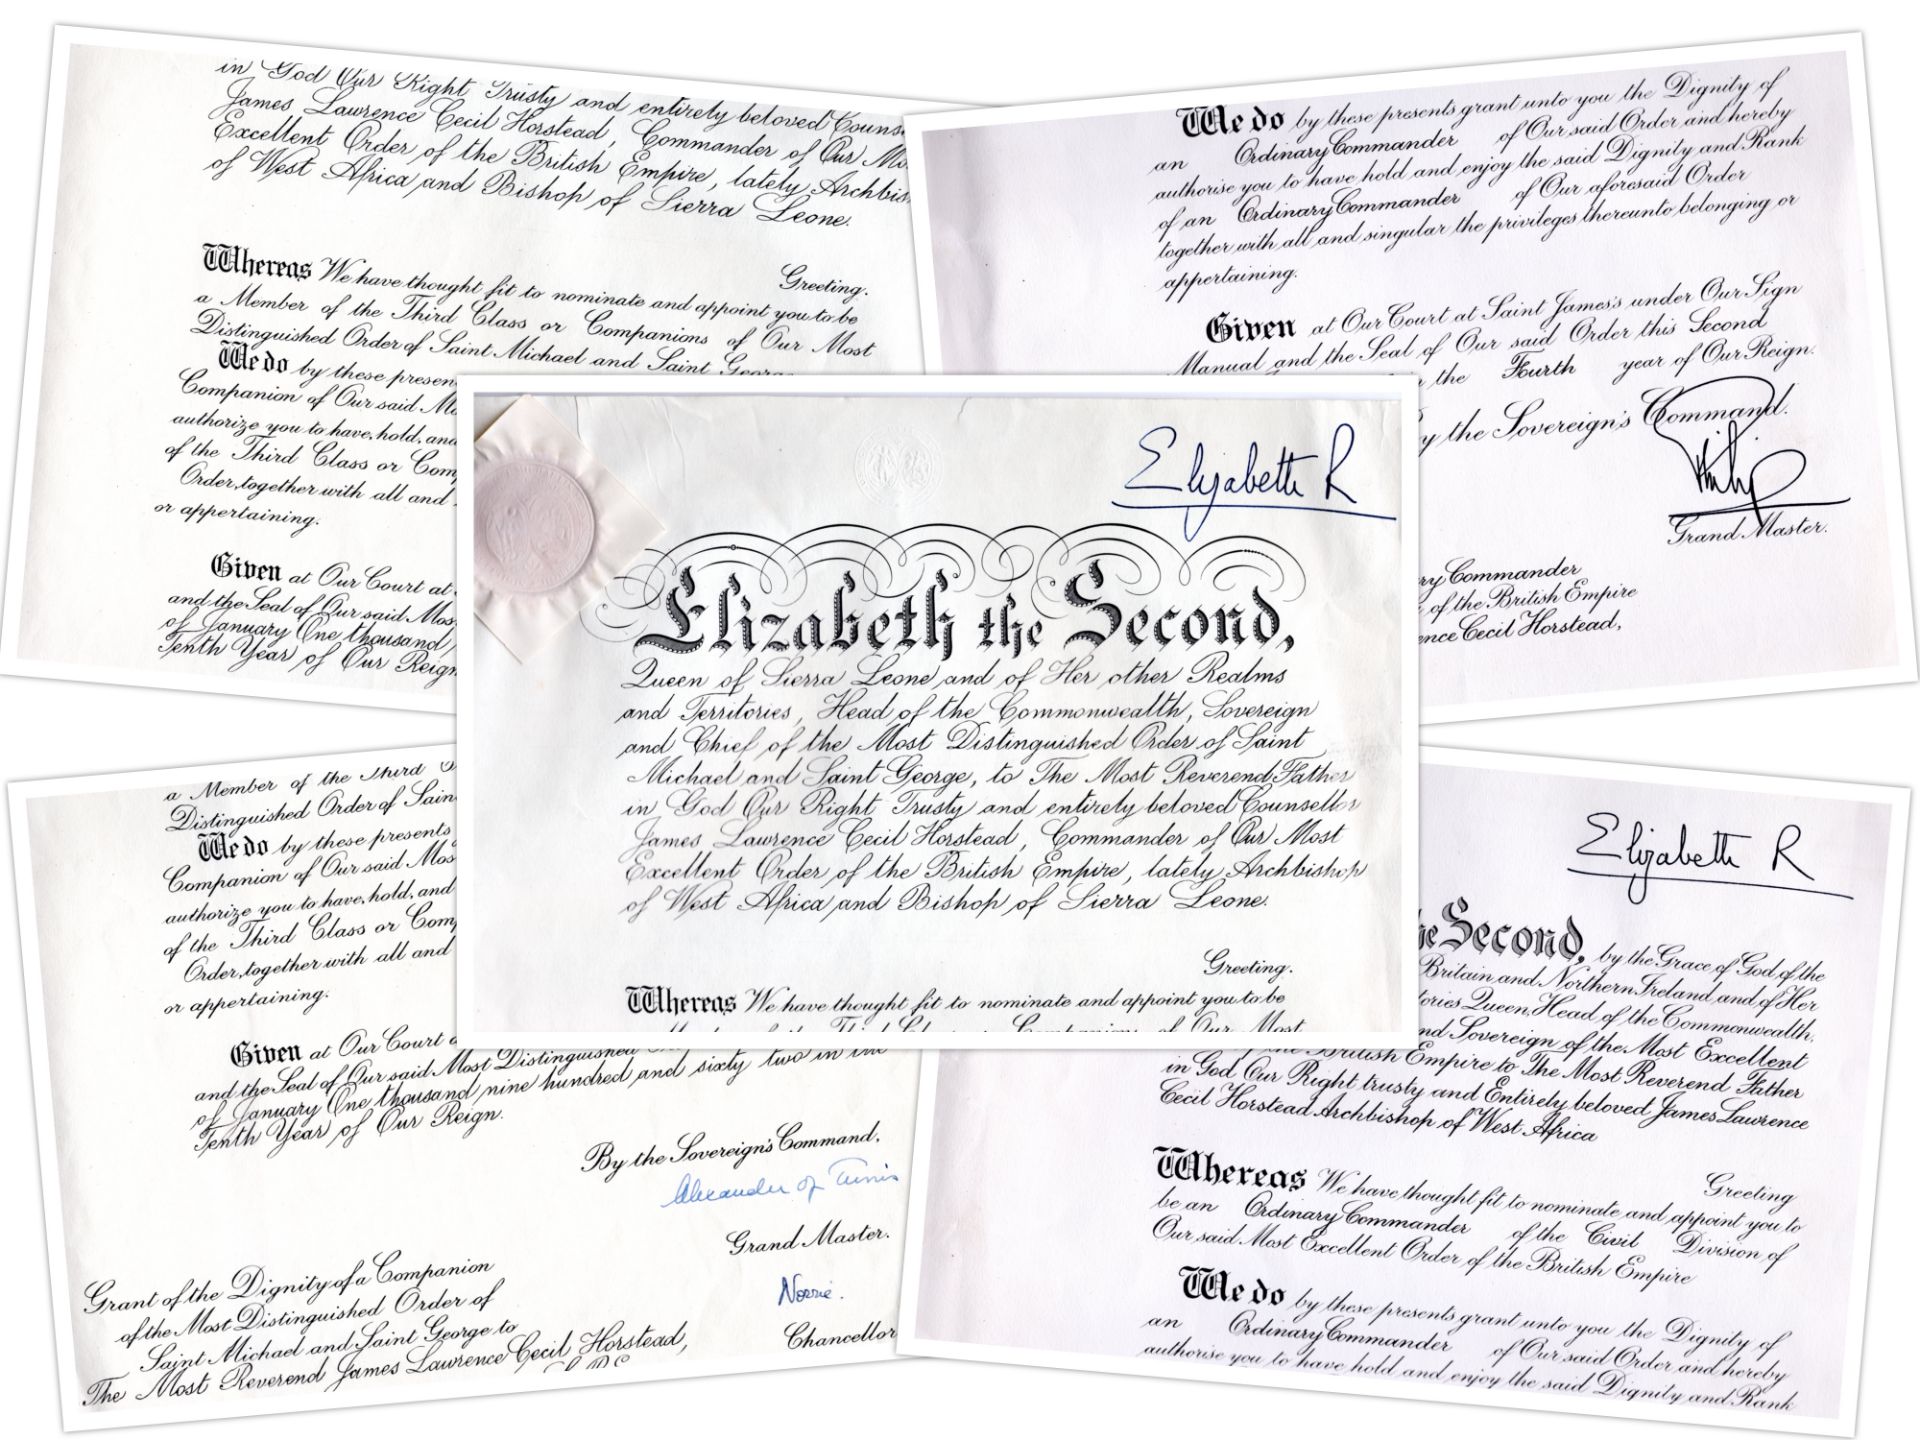 in God Our Right Trusty and entirely beloved Couns
James Lawrence Cecil Horstead, Commander of Our Mo
Excellent Order of the British Empire, lately Archbis
of West Africa and Bishop of Sierra Leone.
Greeting.
Whereas We have thought fit to nominate and appoint you to be
a Member of the Third Class or Companions of Our Most
Distinguished Order of Saint Michael and Saint George
We do by these presen
Companion of Our said Mo
authorize you to have, hold, and
of the Third Class or Com
Order, together with all and
or appertaining.
Given at Our Court at
and the Seal of Our said Mos
of January One thousand
Tenth Year of Our Reign
We do by these presents grant unto you the Dignity of
an Ordinary Commander of Our said Order and hereby
authorise you to have hold and enjoy the said Dignity and Rank
of an Ordinary Commander of Our aforesaid Order
together with all and singular the privileges thereunto belonging or
appertaining.
Given at Our Court at Saint James's under Our Sign
Manual and the Seal of Our said Order this Second
the Fourth year of Our Reign.
y the Sovereign's Command.
Philip
Grand Master.
ry Commander
of the British Empire
ence Cecil Horstead,
Elizabeth R
Elizabeth the Second,
Queen of Sierra Leone and of Her other Realms
and Territories, Head of the Commonwealth, Sovereign
and Chief of the Most Distinguished Order of Saint
Michael and Saint George, to The Most Reverend Father
in God Our Right Trusty and entirely beloved Counsellor
James Lawrence Cecil Horstead, Commander of Our Most
Excellent Order of the British Empire, lately Archbishop
of West Africa and Bishop of Sierra Leone.
Greeting.
Whereas We have thought fit to nominate and appoint you to be
a Member of the Third
Distinguished Order of Sain
We do by these presents
Companion of Our said Mos
authorize you to have, hold, and
of the Third Class or Com
Order, together with all and
or appertaining.
Given at Our Court a
and the Seal of Our said Most Distinguished
of January One thousand nine hundred and sixty two in the
Tenth Year of Our Reign.
By the Sovereign's Command,
Alexander of Tunis
Grand Master.
Norrie.
Chancellor
Grant of the Dignity of a Companion
of the Most Distinguished Order of
Saint Michael and Saint George to
The Most Reverend James Lawrence Cecil Horstead,
Elizabeth R
he Second, by the Grace of God of the
Britain and Northern Ireland and of Her
tories Queen, Head of the Commonwealth,
nd Sovereign of the Most Excellent
the British Empire to The Most Reverend Father
in God Our Right trusty and Entirely beloved James Lawrence
Cecil Horstead Archbishop of West Africa
Greeting
Whereas We have thought fit to nominate and appoint you to
be an Ordinary Commander of the Civil Division of
Our said Most Excellent Order of the British Empire
We do by these presents grant unto you the Dignity of
an Ordinary Commander of Our said Order and hereby
authorise you to have hold and enjoy the said Dignity and Rank